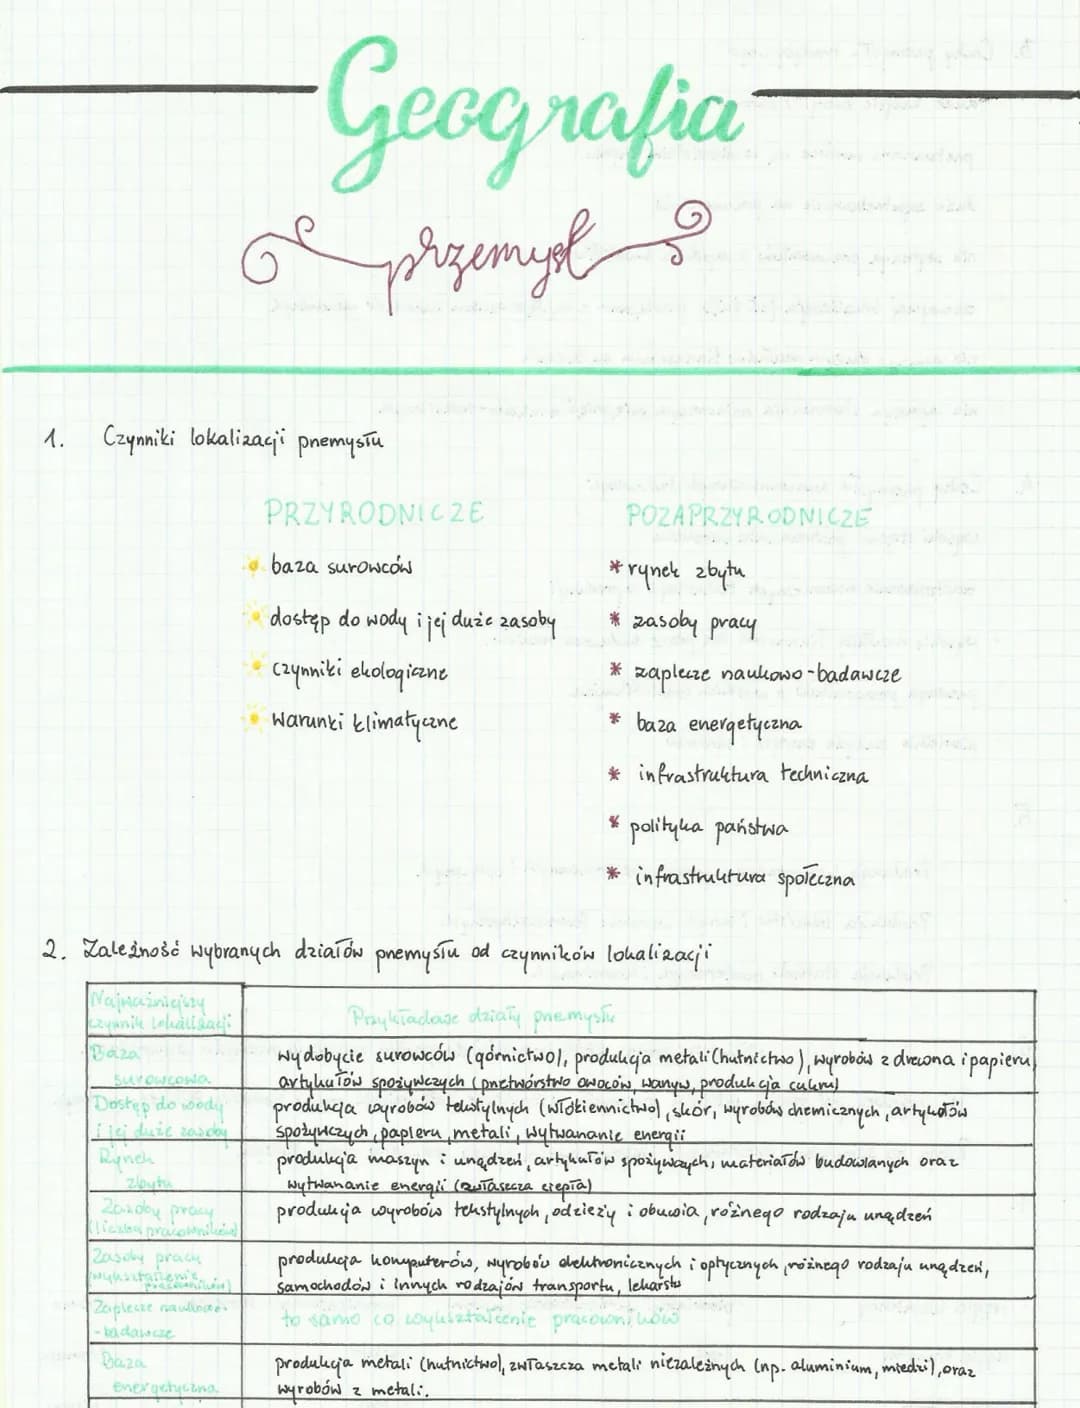 Geografia
przemysł
1. Czynniki lokalizacji przemysłu
PRZYRODNICZE
baza surowców
dostęp do wody i jej duże zasoby
czynniki ekologiczne
warunki klimatyczne
POZAPRZYRODNICZE
* rynek zbytu
* zasoby pracy
* zaplecze naukowo-badawcze
* baza energetyczna
* infrastruktura techniczna
* polityka państwa
* infrastruktura społeczna
2. Zależność wybranych działów przemysłu od czynników lokalizacji
Najważniejszy
czynnik lokalizacji
Przykładowe działy przemysłu
Baza
surowcowa
wydobycie surowców (górnictwo), produkcja metali (hutnictwo), wyrobów z drewna i papieru,
artykułów spożywczych (przetwórstwo owoców, warzyw, produkcja cukru)
Dostęp do wody
i jej duże zasoby
produkcja wyrobów tekstylnych (włókiennictwo), skór, wyrobów chemicznych, artykułów
spożywczych, papieru, metali, wytwarzanie energii
Rynek
zbytu
produkcja maszyn i urządzeń, artykułów spożywczych, materiałów budowlanych oraz
wytwarzanie energii (zwłaszcza ciepła)
Zasoby pracy
(liczba pracowników)
produkcja wyrobów tekstylnych, odzieży i obuwia, różnego rodzaju urządzeń
Zasoby pracy
(wykształcenie
pracowników)
produkcja komputerów, wyrobów elektronicznych i optycznych, różnego rodzaju urządzeń,
samochodów i innych rodzajów transportu, lekarstw
Zaplecze naukowo-
-badawcze
to samo co wykształcenie pracowników
Baza
energetyczna
produkcja metali (hutnictwo), zwłaszcza metali nieżależnych (np. aluminium, miedzi), oraz
wyrobów z metali.